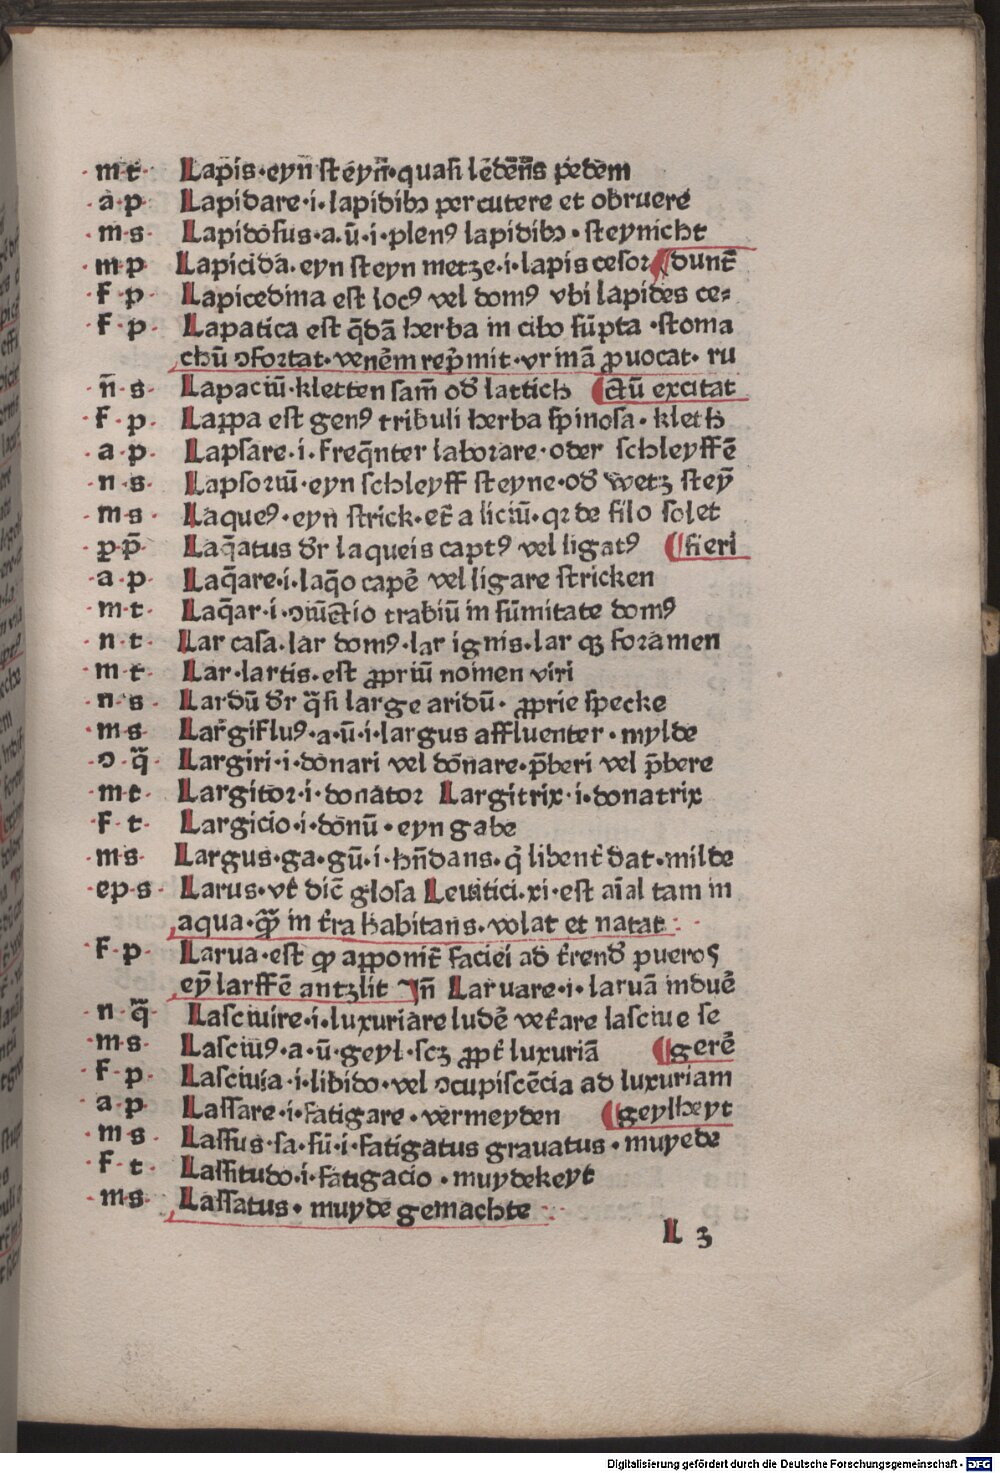 ·m·t· Lapis·eyn̄ steyn̄·quasi lēdēn̄s pedem
·a·p· Lapidare·i·lapidibꝫ percutere et obruere
·m·s· Lapidosus·a·ū·i·plenꝰ lapidibꝫ·steynicht
·m·p Lapicida·eyn steyn metze·i·lapis cesor ¶dunt̄
·f·p· Lapicedina est locꝰ vel domꝰ vbi lapides ce⸗
·f·p· Lapatica est q̄dā herba in cibo sūpta·stoma
chū ɔfortat·venēm rep̄mit·vrinā ꝓuocat·ru
·n̄·s· Lapaciū·kletten sam̄ od̄ lattich ¶ctū excitat
·f·p· Lappa est genꝰ tribuli herba spinosa·kleth
·a·p· Lapsare·i·freq̄nter laborare·oder schleyffē
·n·s· Lapsoriū·eyn schleyff steyne·od̄ wetz stey̅
·m·s· Laqueꝰ·eyn strick·et̄ a liciū·qꝛ de filo solet
p·p̄· Laq̄atus dr̄ laqueis captꝰ vel ligatꝰ ¶fieri
·a·p· Laq̄are·i·laq̄o capē vel ligare stricken
·m·t· Laq̄ar·i·ɔiūctio trabiū in sūmitate domꝰ
·n·t· Lar casa·lar domꝰ·lar ignis·lar qꝫ foramen
·m·t· Lar·lartis·est ꝓpriū nomen viri
·n·s· Lardū dr̄ q̄si large aridū·ꝓprie specke
·m·s· Largifluꝰ·a·ū·i·largus affluenter·mylde
·ɔ·q̄· Largiri·i·donari vel dōnare·p̄beri vel p̄bere
·m·t· Largitor·i·donator Largitrix·i·donatrix
·f·t· Largicio·i·dōnū·eyn gabe
·m·s· Largus·ga·gū·i·hn̄dans·q̇ libent̄ dat·milde
·ep·s· Larus·vt̄ dic̄ glosa Leuitici·xi·est aīal tam in
aqua·ꝙ̄ in t̄ra habitans·volat et natat
·f·p· Larua·est ꝙ apponit̄ faciei ad t̄rend̄ pueros
ey̅ larffē antzlit Jn̄ Laruare·i·laruā induē
·n·q̄· Lasciuire·i·luxuriare ludē vet̄are lasciue se
·m·s· Lasciuꝰ·a·ū·geyl·scꝫ ꝓpt̄ luxuriā ¶gerē
·f·p· Lasciuia·i·libido·vel ɔcupiscēcia ad luxuriam
·a·p Lassare·i·fatigare·vermeyden ¶geylheyt
·m·s· Lassus·sa·sū·i·fatigatus grauatus·muyede
·f·t· Lassitudo·i·fatigacio·muydekeyt
·m·s· Lassatus·muyde gemachte
L 3
Digitalisierung gefördert durch die Deutsche Forschungsgemeinschaft - DFG